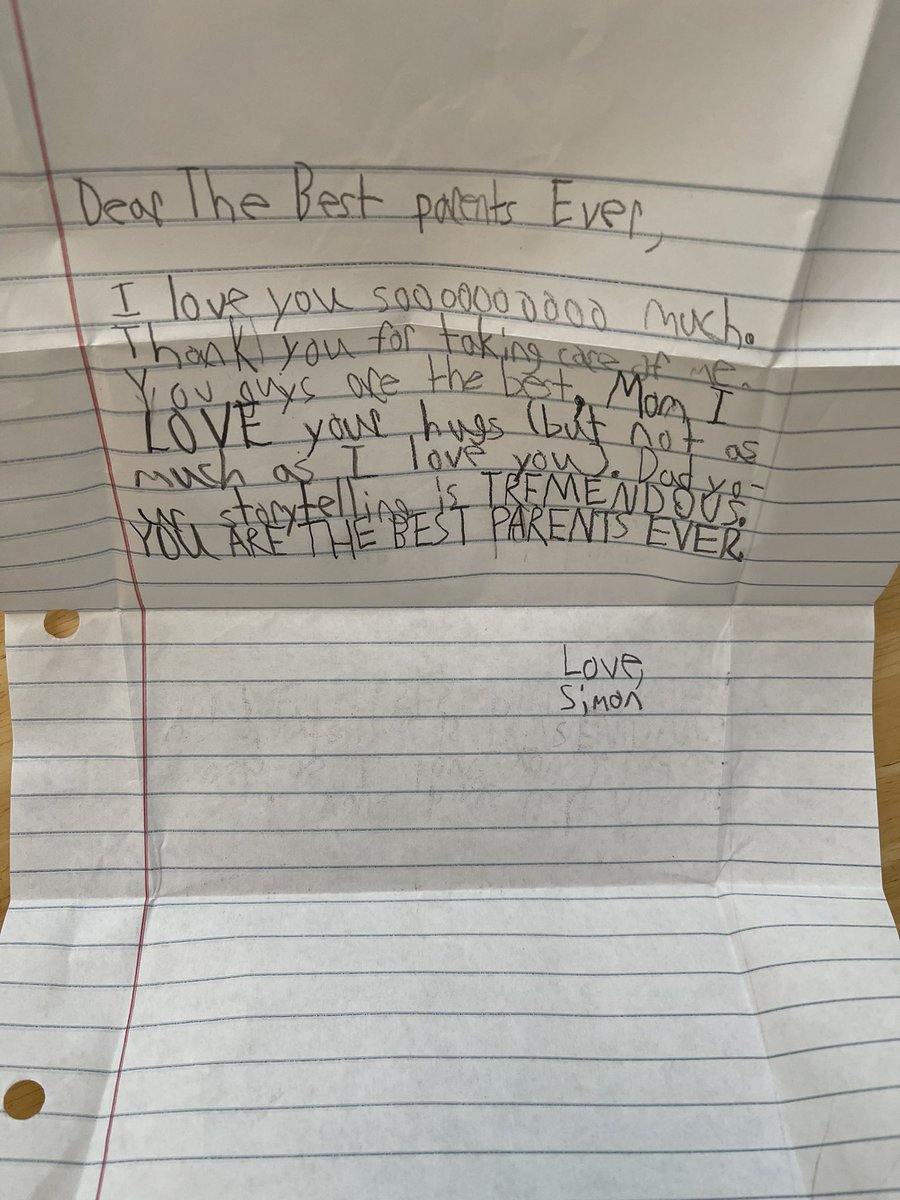 Dear The Best parents Ever,
I love you soooooooooo much.
Thank you for taking care of me.
You guys are the best. Mom I
LOVE your hugs (but not as
much as I love you). Dad yo-
ur storytelling is TREMENDOUS.
YOU ARE THE BEST PARENTS EVER.
Love,
Simon